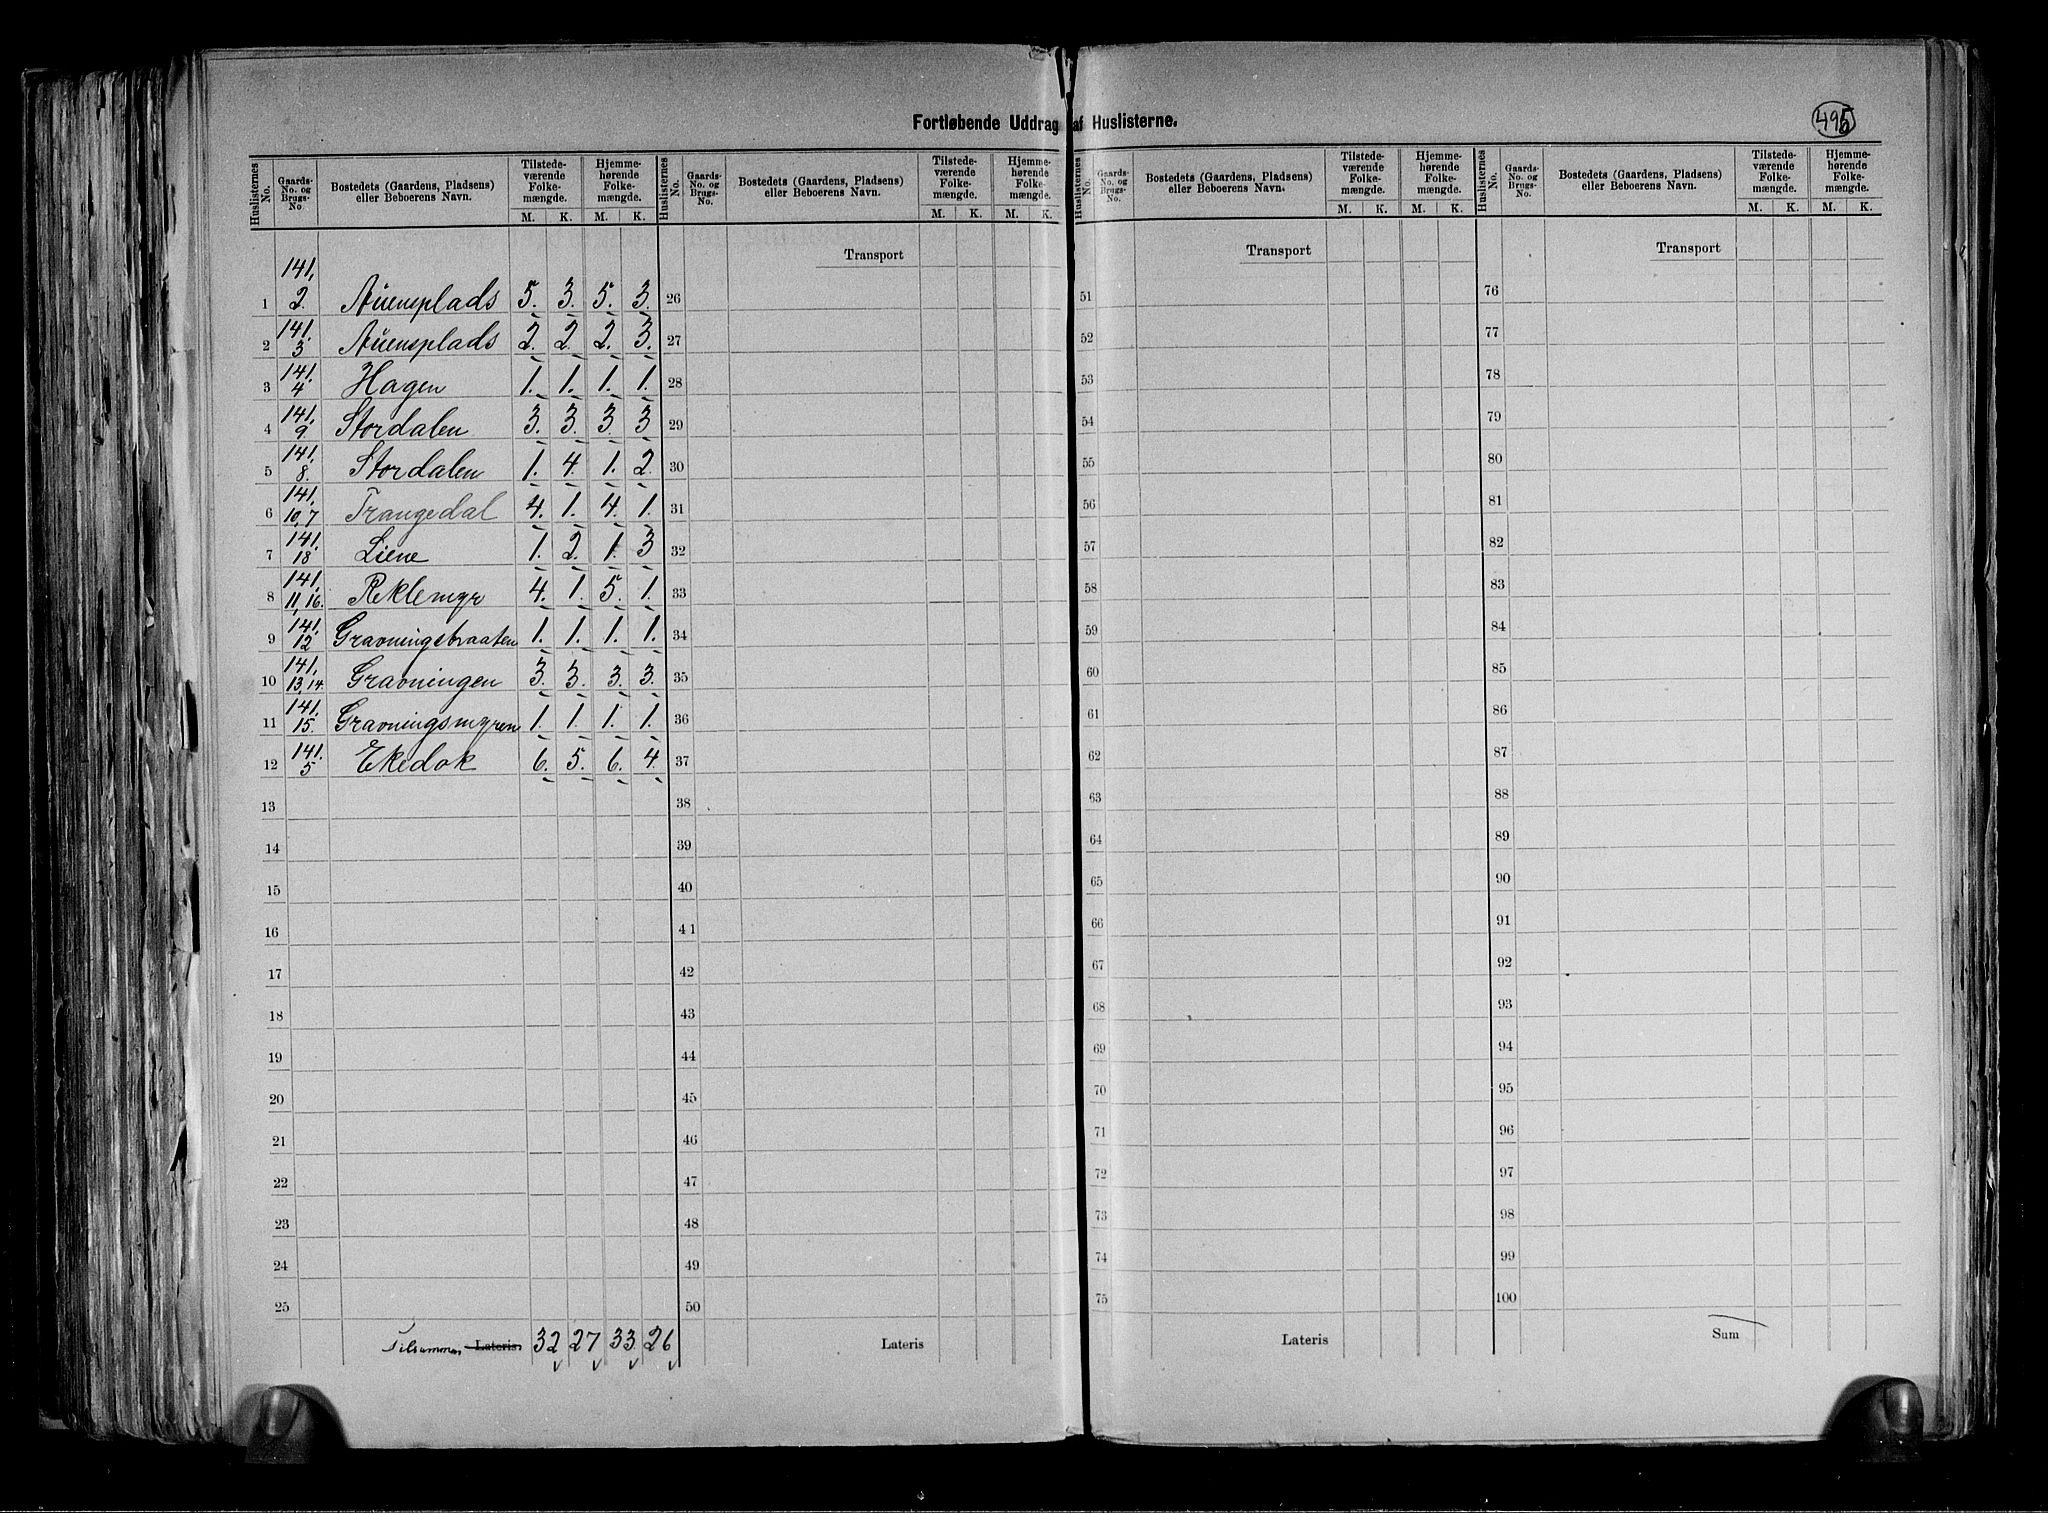 495
Fortløbende Uddrag af Huslisterne.
Huslisternes No. Gaards- No. og Brugs- No. Bostedets (Gaardens, Pladsens) eller Beboerens Navn. Tilstede- værende Folke- mængde. Hjemme- hørende Folke- mængde. M. K. M. K.
Huslisternes No. Gaards- No. og Brugs- No. Bostedets (Gaardens, Pladsens) eller Beboerens Navn. Tilstede- værende Folke- mængde. Hjemme- hørende Folke- mængde. M. K. M. K.
Huslisternes No. Gaards- No. og Brugs- No. Bostedets (Gaardens, Pladsens) eller Beboerens Navn. Tilstede- værende Folke- mængde. Hjemme- hørende Folke- mængde. M. K. M. K.
Huslisternes No. Gaards- No. og Brugs- No. Bostedets (Gaardens, Pladsens) eller Beboerens Navn. Tilstede- værende Folke- mængde. Hjemme- hørende Folke- mængde. M. K. M. K.
Transport Transport Transport
1 141, 2. Auensplads 5. 3. 5. 3. 26 51 76
2 141, 3 Auensplads 2. 2. 2. 3. 27 52 77
3 141, 4 Hagen 1. 1. 1. 1. 28 53 78
4 141, 9. Stordalen 3. 3. 3. 3 29 54 79
5 141, 8. Stordalen 1. 4. 1. 2. 30 55 80
6 141, 10, 7 Trangedal 4. 1. 4. 1. 31 56 81
7 141, 18 Liene 1. 2. 1. 3 32 57 82
8 141, 11, 16. Reklemyr 4. 1. 5. 1. 33 58 83
9 141, 12 Gravningsbraaten 1. 1. 1. 1. 34 59 84
10 141, 13, 14. Gravningen 3. 3. 3. 3. 35 60 85
11 141, 15. Gravningsmyren 1. 1. 1. 1. 36 61 86
12 141. 5 Ekedok 6. 5. 6. 4. 37 62 87
13 38 63 88
14 39 64 89
15 40 65 90
16 41 66 91
17 42 67 92
18 43 68 93
19 44 69 94
20 45 70 95
21 46 71 96
22 47 72 97
23 48 73 98
24 49 74 99
25 50 75 100
Tilsammen Lateris 32 27 33 26 Lateris Lateris Sum